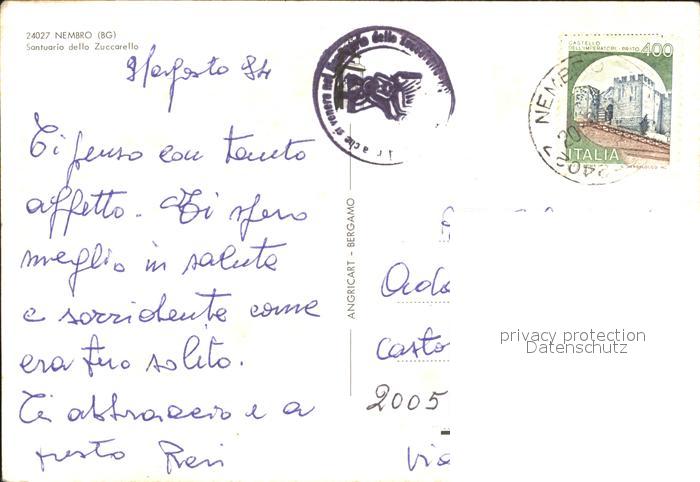 24027 NEMBRO (BG)
Santuario dello Zuccarello
Agosto 84
Ti penso con tanto
affetto. Ti spero
meglio in salute
e sorridente come
era tuo solito.
Ti abbraccio e a
presto
CASTELLO
DELL'IMPERATORE - PRATO 400
ITALIA
NEMBRO
20
24027
ANGRICART - BERGAMO
Ado
Casto
2005
Via
privacy protection
Datenschutz